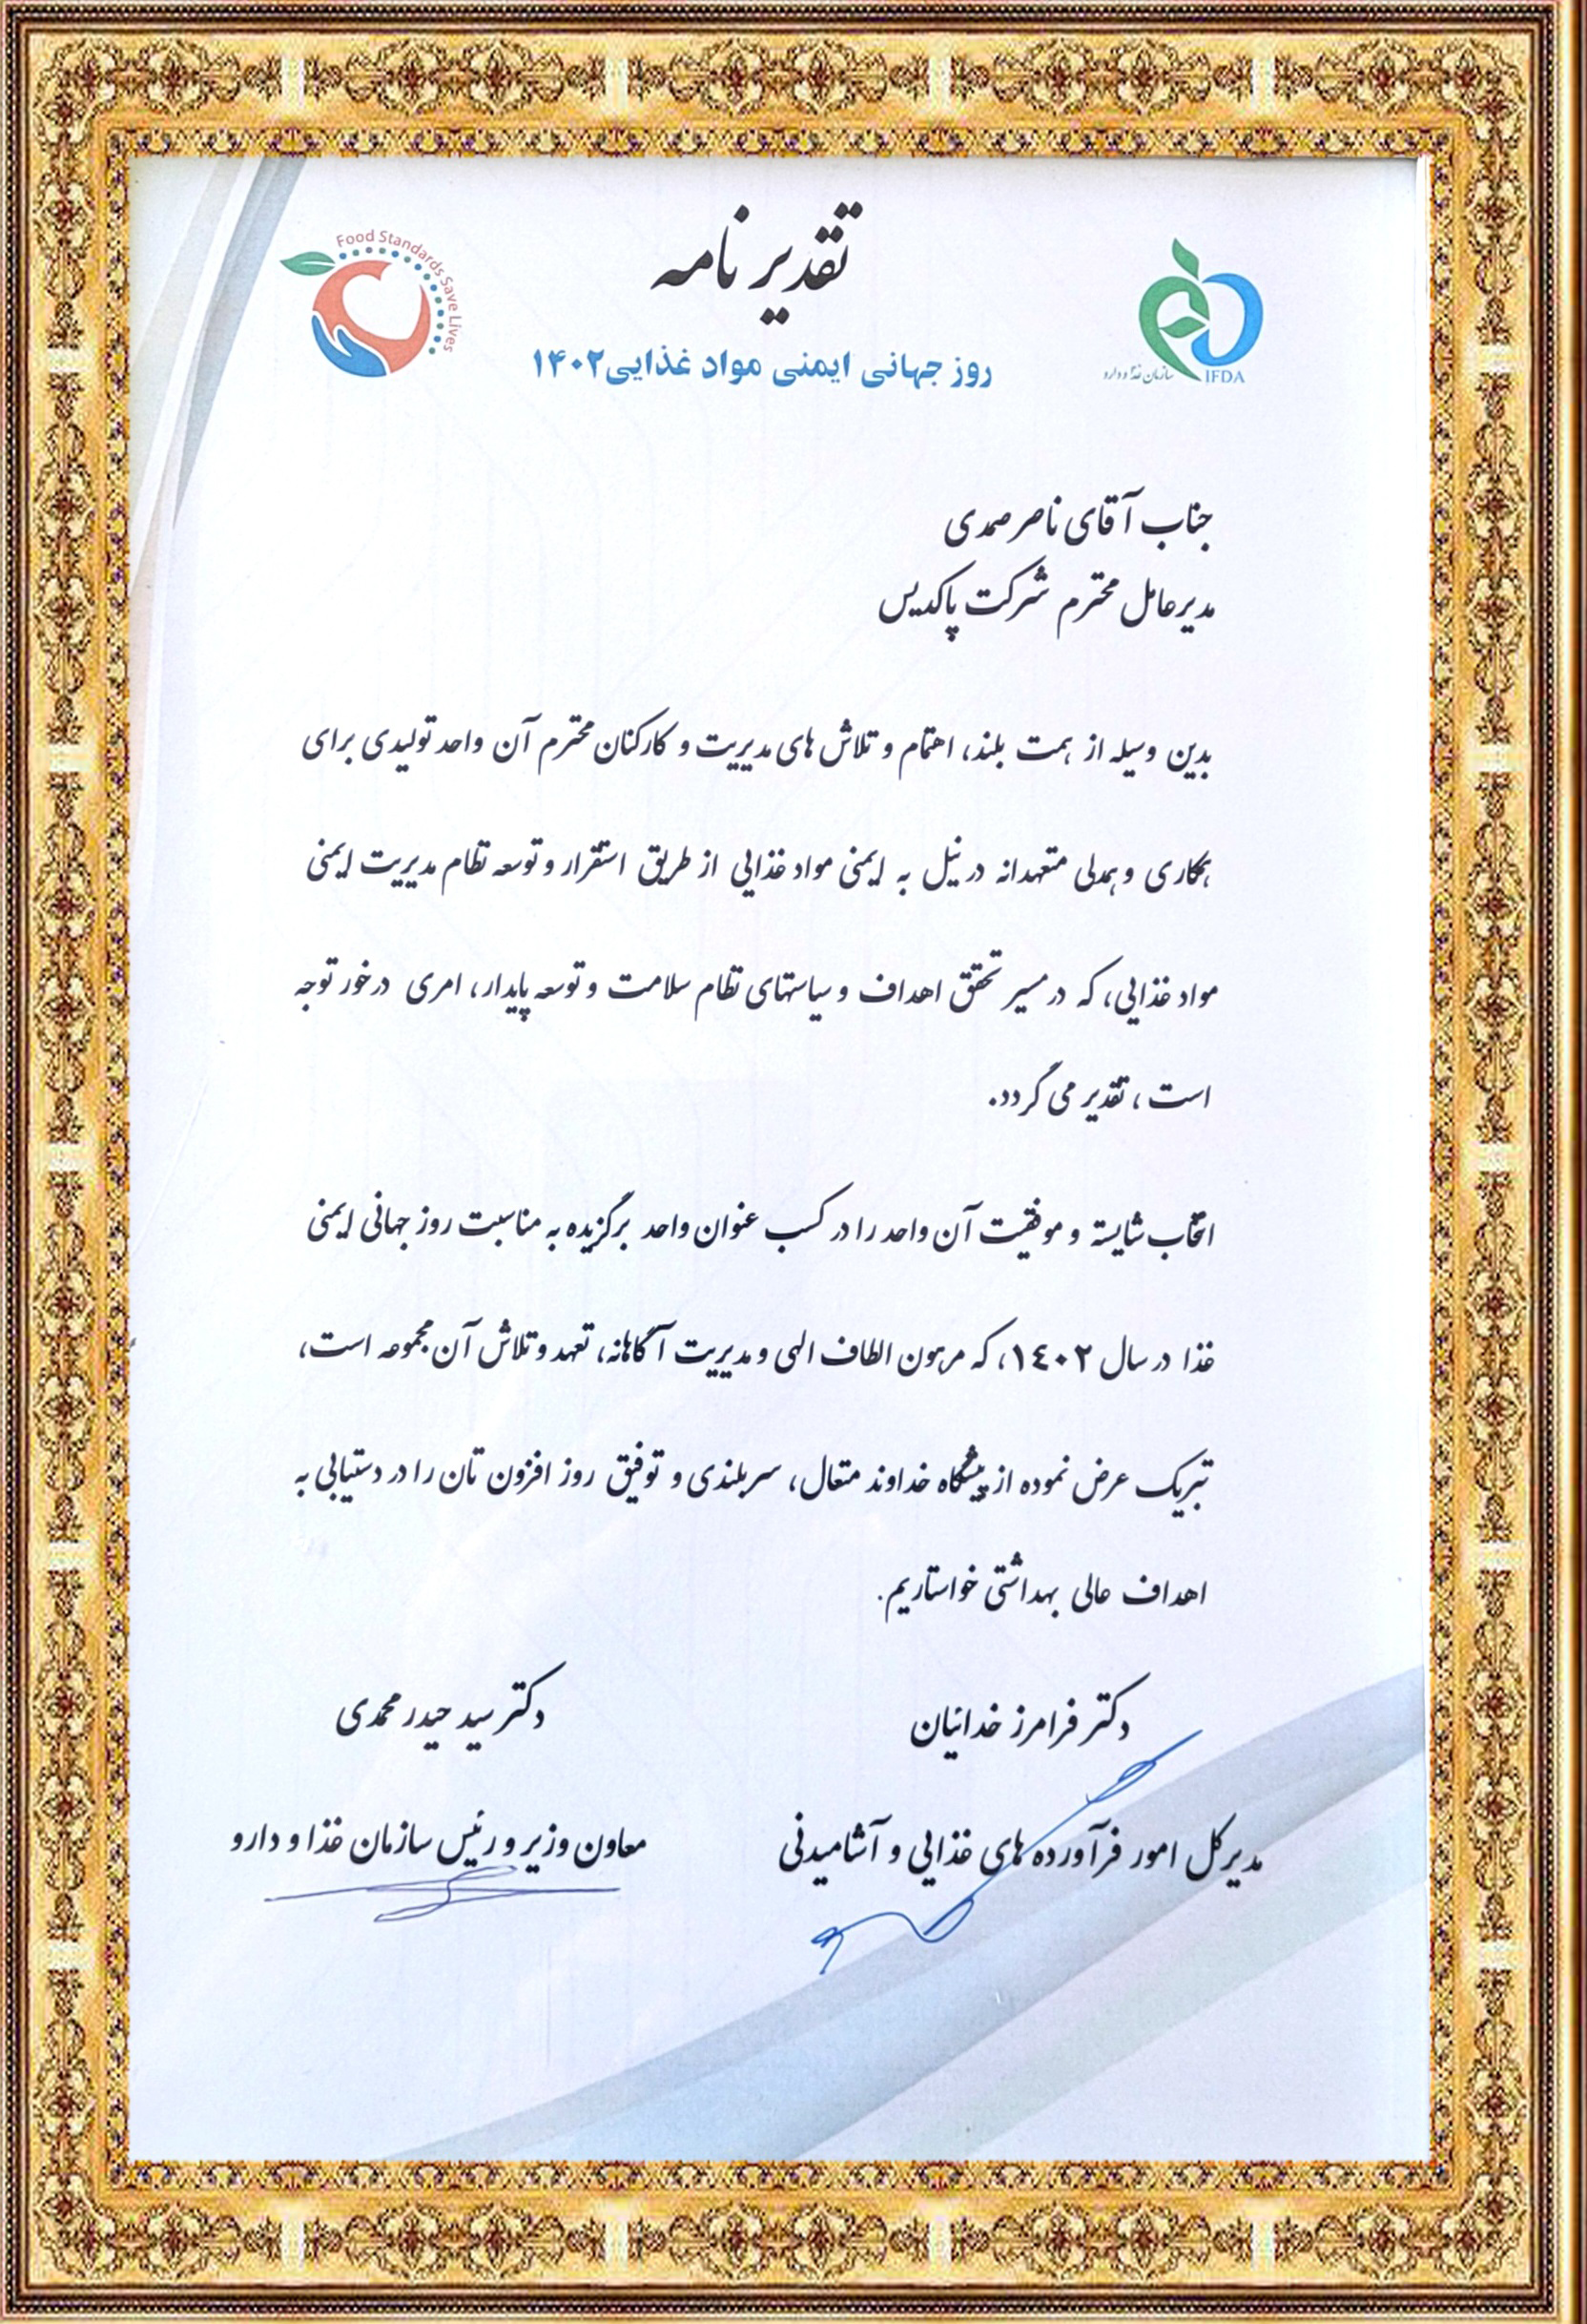 تقدیر نامه
Food Standards Save Lives
روز جهانی ایمنی مواد غذایی ۱۴۰۲
سازمان غذا و دارو
IFDA
جناب آقای ناصر صمدی
مدیرعامل محترم شرکت پاکدیس
بدین وسیله از همت بلند، اهتمام و تلاش های مدیریت و کارکنان محترم آن واحد تولیدی برای
همکاری و همدلی متعهدانه در نیل به ایمنی مواد غذایی از طریق استقرار و توسعه نظام مدیریت ایمنی
مواد غذایی، که در مسیر تحقق اهداف و سیاستهای نظام سلامت و توسعه پایدار، امری درخور توجه
است، تقدیر می گردد.
انتخاب شایسته و موفقیت آن واحد را در کسب عنوان واحد برگزیده به مناسبت روز جهانی ایمنی
غذا در سال ۱۴۰۲، که مرهون الطاف الهی و مدیریت آگاهانه، تعهد و تلاش آن مجموعه است،
تبریک عرض نموده از پیشگاه خداوند متعال، سربلندی و توفیق روز افزون تان را در دستیابی به
اهداف عالی بهداشتی خواستاریم.
دکتر فرامرز خدائیان
مدیرکل امور فرآورده های غذایی و آشامیدنی
دکتر سید حیدر محمدی
معاون وزیر و رئیس سازمان غذا و دارو